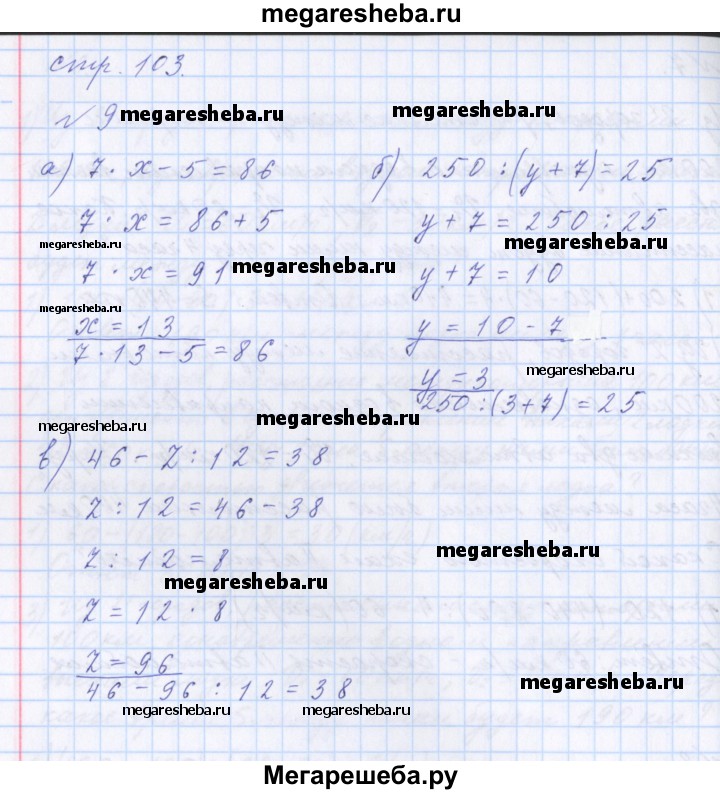 megaresheba.ru
стр. 103.
№ 9 megaresheba.ru
megaresheba.ru
а) 7 · x - 5 = 86
7 · x = 86 + 5
megaresheba.ru
7 · x = 91 megaresheba.ru
megaresheba.ru
x = 13
7 · 13 - 5 = 86
megaresheba.ru
б) 250 : (y + 7) = 25
y + 7 = 250 : 25
megaresheba.ru
y + 7 = 10
y = 10 - 7
megaresheba.ru
y = 3
250 : (3 + 7) = 25
megaresheba.ru
в) 46 - z : 12 = 38
z : 12 = 46 - 38
z : 12 = 8
megaresheba.ru
megaresheba.ru
z = 12 · 8
z = 96
46 - 96 : 12 = 38
megaresheba.ru
megaresheba.ru
megaresheba.ru
Мегарешеба.ру